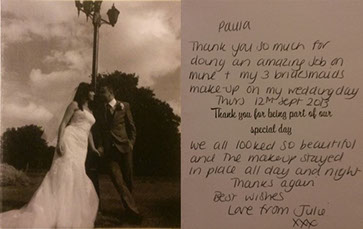 Paula
Thank you so much for
doing an amazing job on
mine + my 3 bridesmaids
make-up on my wedding day
Thurs 12th Sept 2013
Thank you for being part of our
special day
we all looked so beautiful
and the makeup stayed
in place all day and night
Thanks again
Best wishes
Love from Julie
xxx